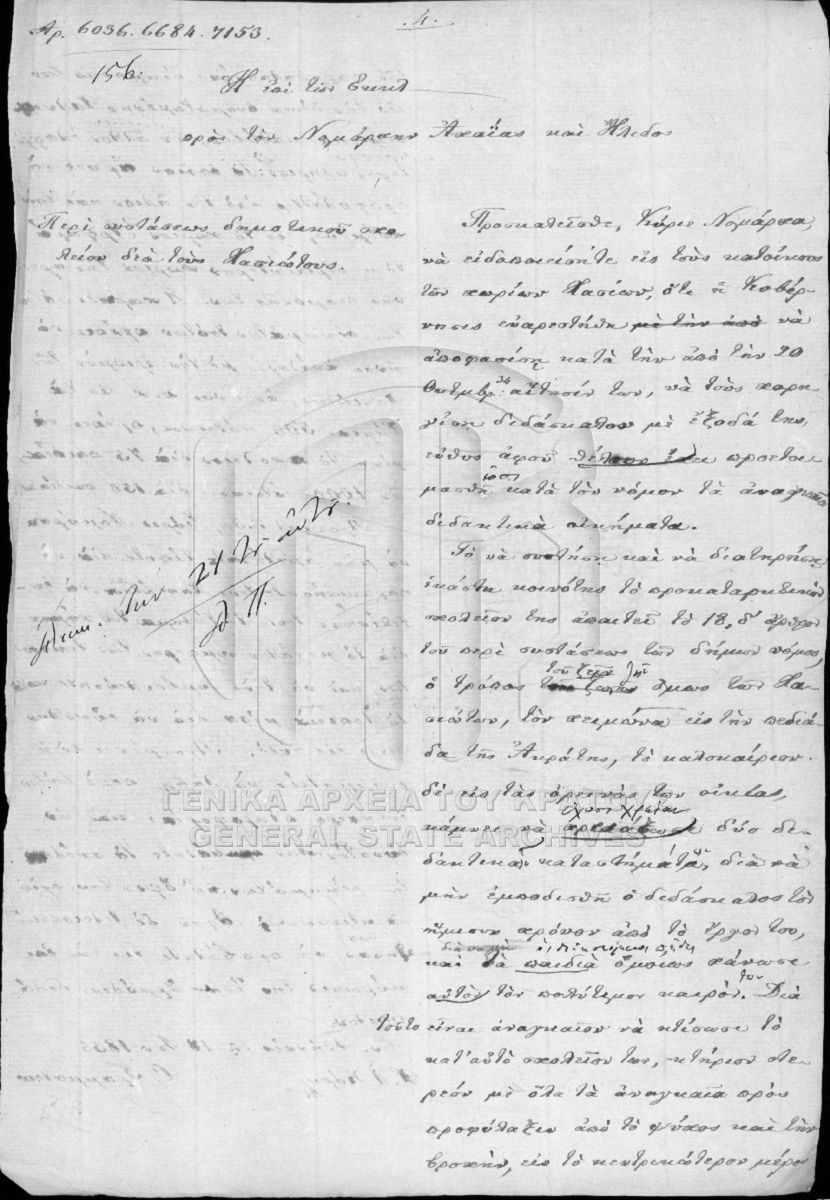 Αρ. 6036. 6684. 7153.
.4.
156.
Ἡ ἐπὶ τῶν Ἐκκλ
πρὸς τὸν Νομάρχην Ἀχαΐας καὶ Ἤλιδος
Περὶ συστάσεως δημοτικοῦ σχο-
λείου διὰ τοὺς Χασιώτους.
Προσκαλεῖσθε, Κύριε Νομάρχα,
νὰ εἰδοποιήσητε εἰς τοὺς κατοίκους
τῶν χωρίων Χασίων, ὅτι ἡ Κυβέρ-
νησις εὐαρεστήθη μὲ τὴν ἀπὸ νὰ
ἀποφασίσῃ κατὰ τὴν ἀπὸ τὴν 20
Ὀκτωμβρ: 34 αἴτησίν των, νὰ τοὺς χορη-
γήσῃ διδάσκαλον μὲ ἔξοδά της,
εὐθὺς ἀφοῦ προετοι-
μασθῶσι κατὰ τὸν νόμον τὰ ἀναγκαῖα
διδακτικὰ οἰκήματα.
Τὸ νὰ συστήσῃ καὶ νὰ διατηρήσῃ
ἑκάστη κοινότης τὸ προκαταρκτικὸν
σχολεῖον της ἀπαιτεῖ τὸ 18, δ' ἄρθρον
τοῦ περὶ συστάσεως τῶν δήμων νόμου,
τοῦ ζῆν
ὁ τρόπος ὅμως τῶν Χα-
σιώτων, τὸν χειμῶνα εἰς τὴν πεδιά-
δα τῆς Ἀκράτης, τὸ καλοκαίριον
δὲ εἰς τὰς ὀρεινὰς των οἰκίας,
ἔχωσι χρείαν
κάμνει νὰ δύο δι-
δακτικῶν καταστημάτων, διὰ νὰ
μὴν ἐμποδισθῇ ὁ διδάσκαλος τὸν
ἥμισυν χρόνον ἀπὸ τὸ ἔργον του,
καὶ τὰ παιδιὰ ὁμοίως χάνωσι
αὐτὸν τὸν πολύτιμον καιρὸν των. Διὰ
τοῦτο εἶναι ἀναγκαῖον νὰ κτίσωσι τὸ
κατ' αὐτὸ σχολεῖον των, κτήριον στε-
ρεὸν μὲ ὅλα τὰ ἀναγκαῖα πρὸς
προφύλαξιν ἀπὸ τὸ ψύχος καὶ τὴν
βροχὴν, εἰς τὸ κεντρικώτερον μέρος
τὴν 21 τ. αὐτ.
ΓΕΝΙΚΑ ΑΡΧΕΙΑ ΤΟΥ ΚΡΑΤΟΥΣ
GENERAL STATE ARCHIVES